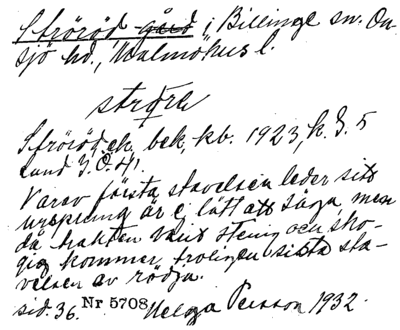 Ströröd gård i Billinge sn. On-
sjö hd., Malmöhus l.
Ströröd ek. bek. kb. 1923, k. I. 5
Lund
Varav första stavelsen leder sitt
ursprung är ej lätt att säga, men
då trakten varit stenig och sko-
gig kommer troligen sista sta-
velsen av rödja.
sid. 36. Nr 5708 Helga Persson 1932.